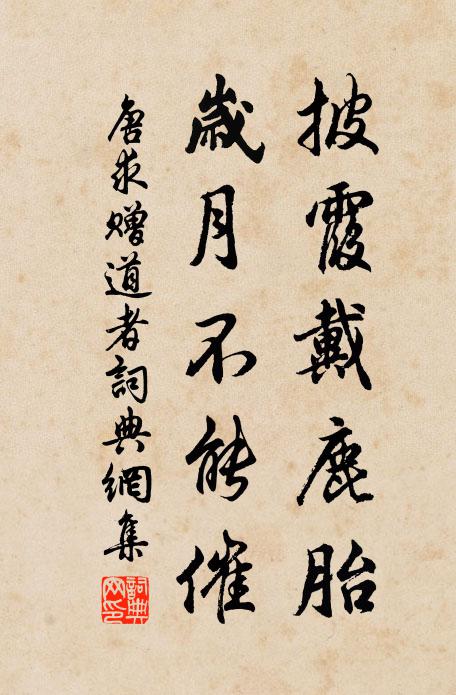 披霞戴鹿胎
歲月不能催
唐求贈道者詞典網集
詞典網印